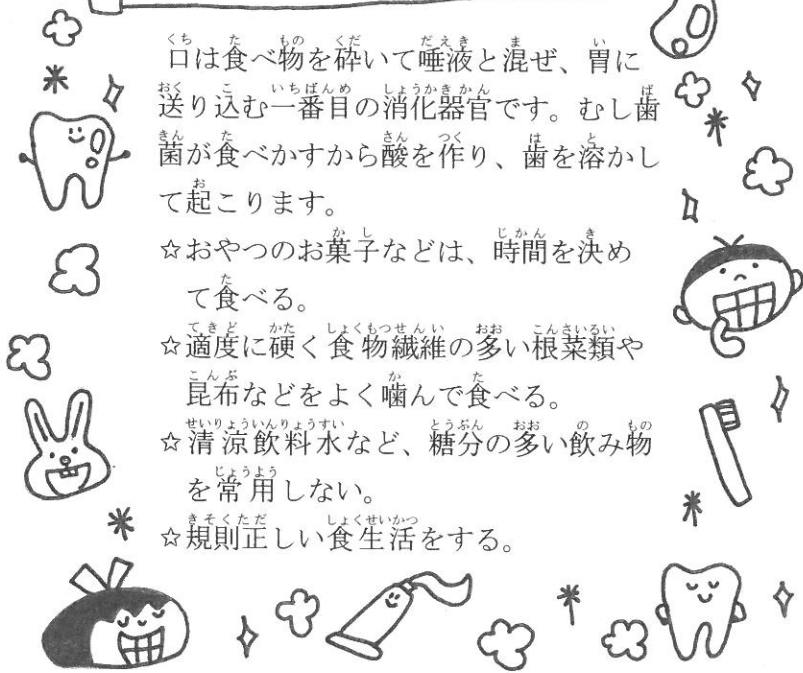 口は食べ物を砕いて唾液と混ぜ、胃に
送り込む一番目の消化器官です。むし歯
菌が食べかすから酸を作り、歯を溶かし
て起こります。
☆おやつのお菓子などは、時間を決め
て食べる。
☆適度に硬く食物繊維の多い根菜類や
昆布などをよく噛んで食べる。
☆清涼飲料水など、糖分の多い飲み物
を常用しない。
☆規則正しい食生活をする。